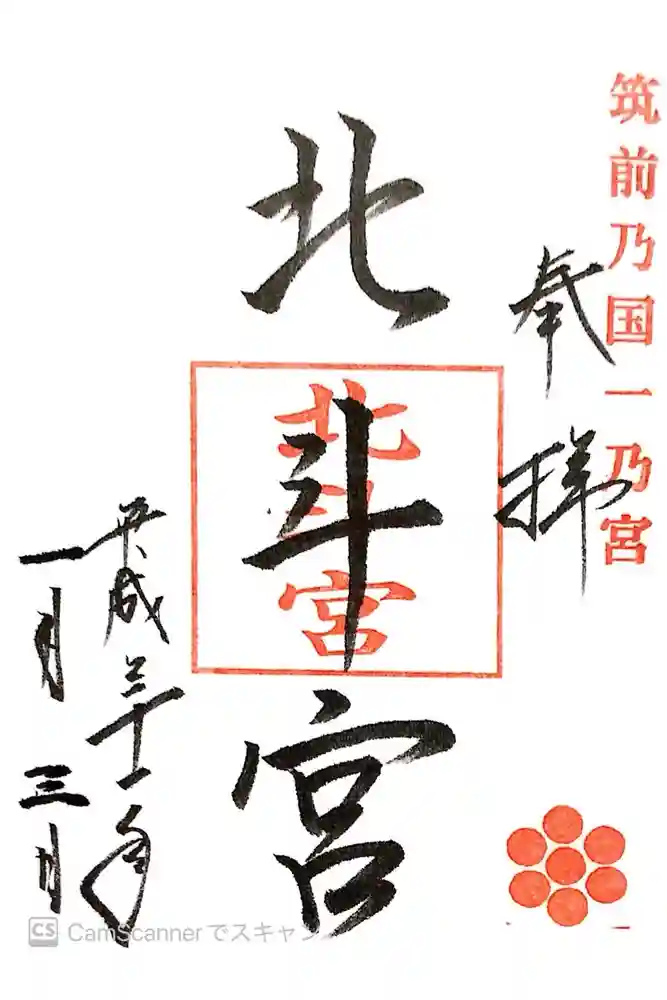 筑前乃国一乃宮
奉拝
北斗宮
北斗宮
平成三十一年
一月三日
CamScannerでスキャン